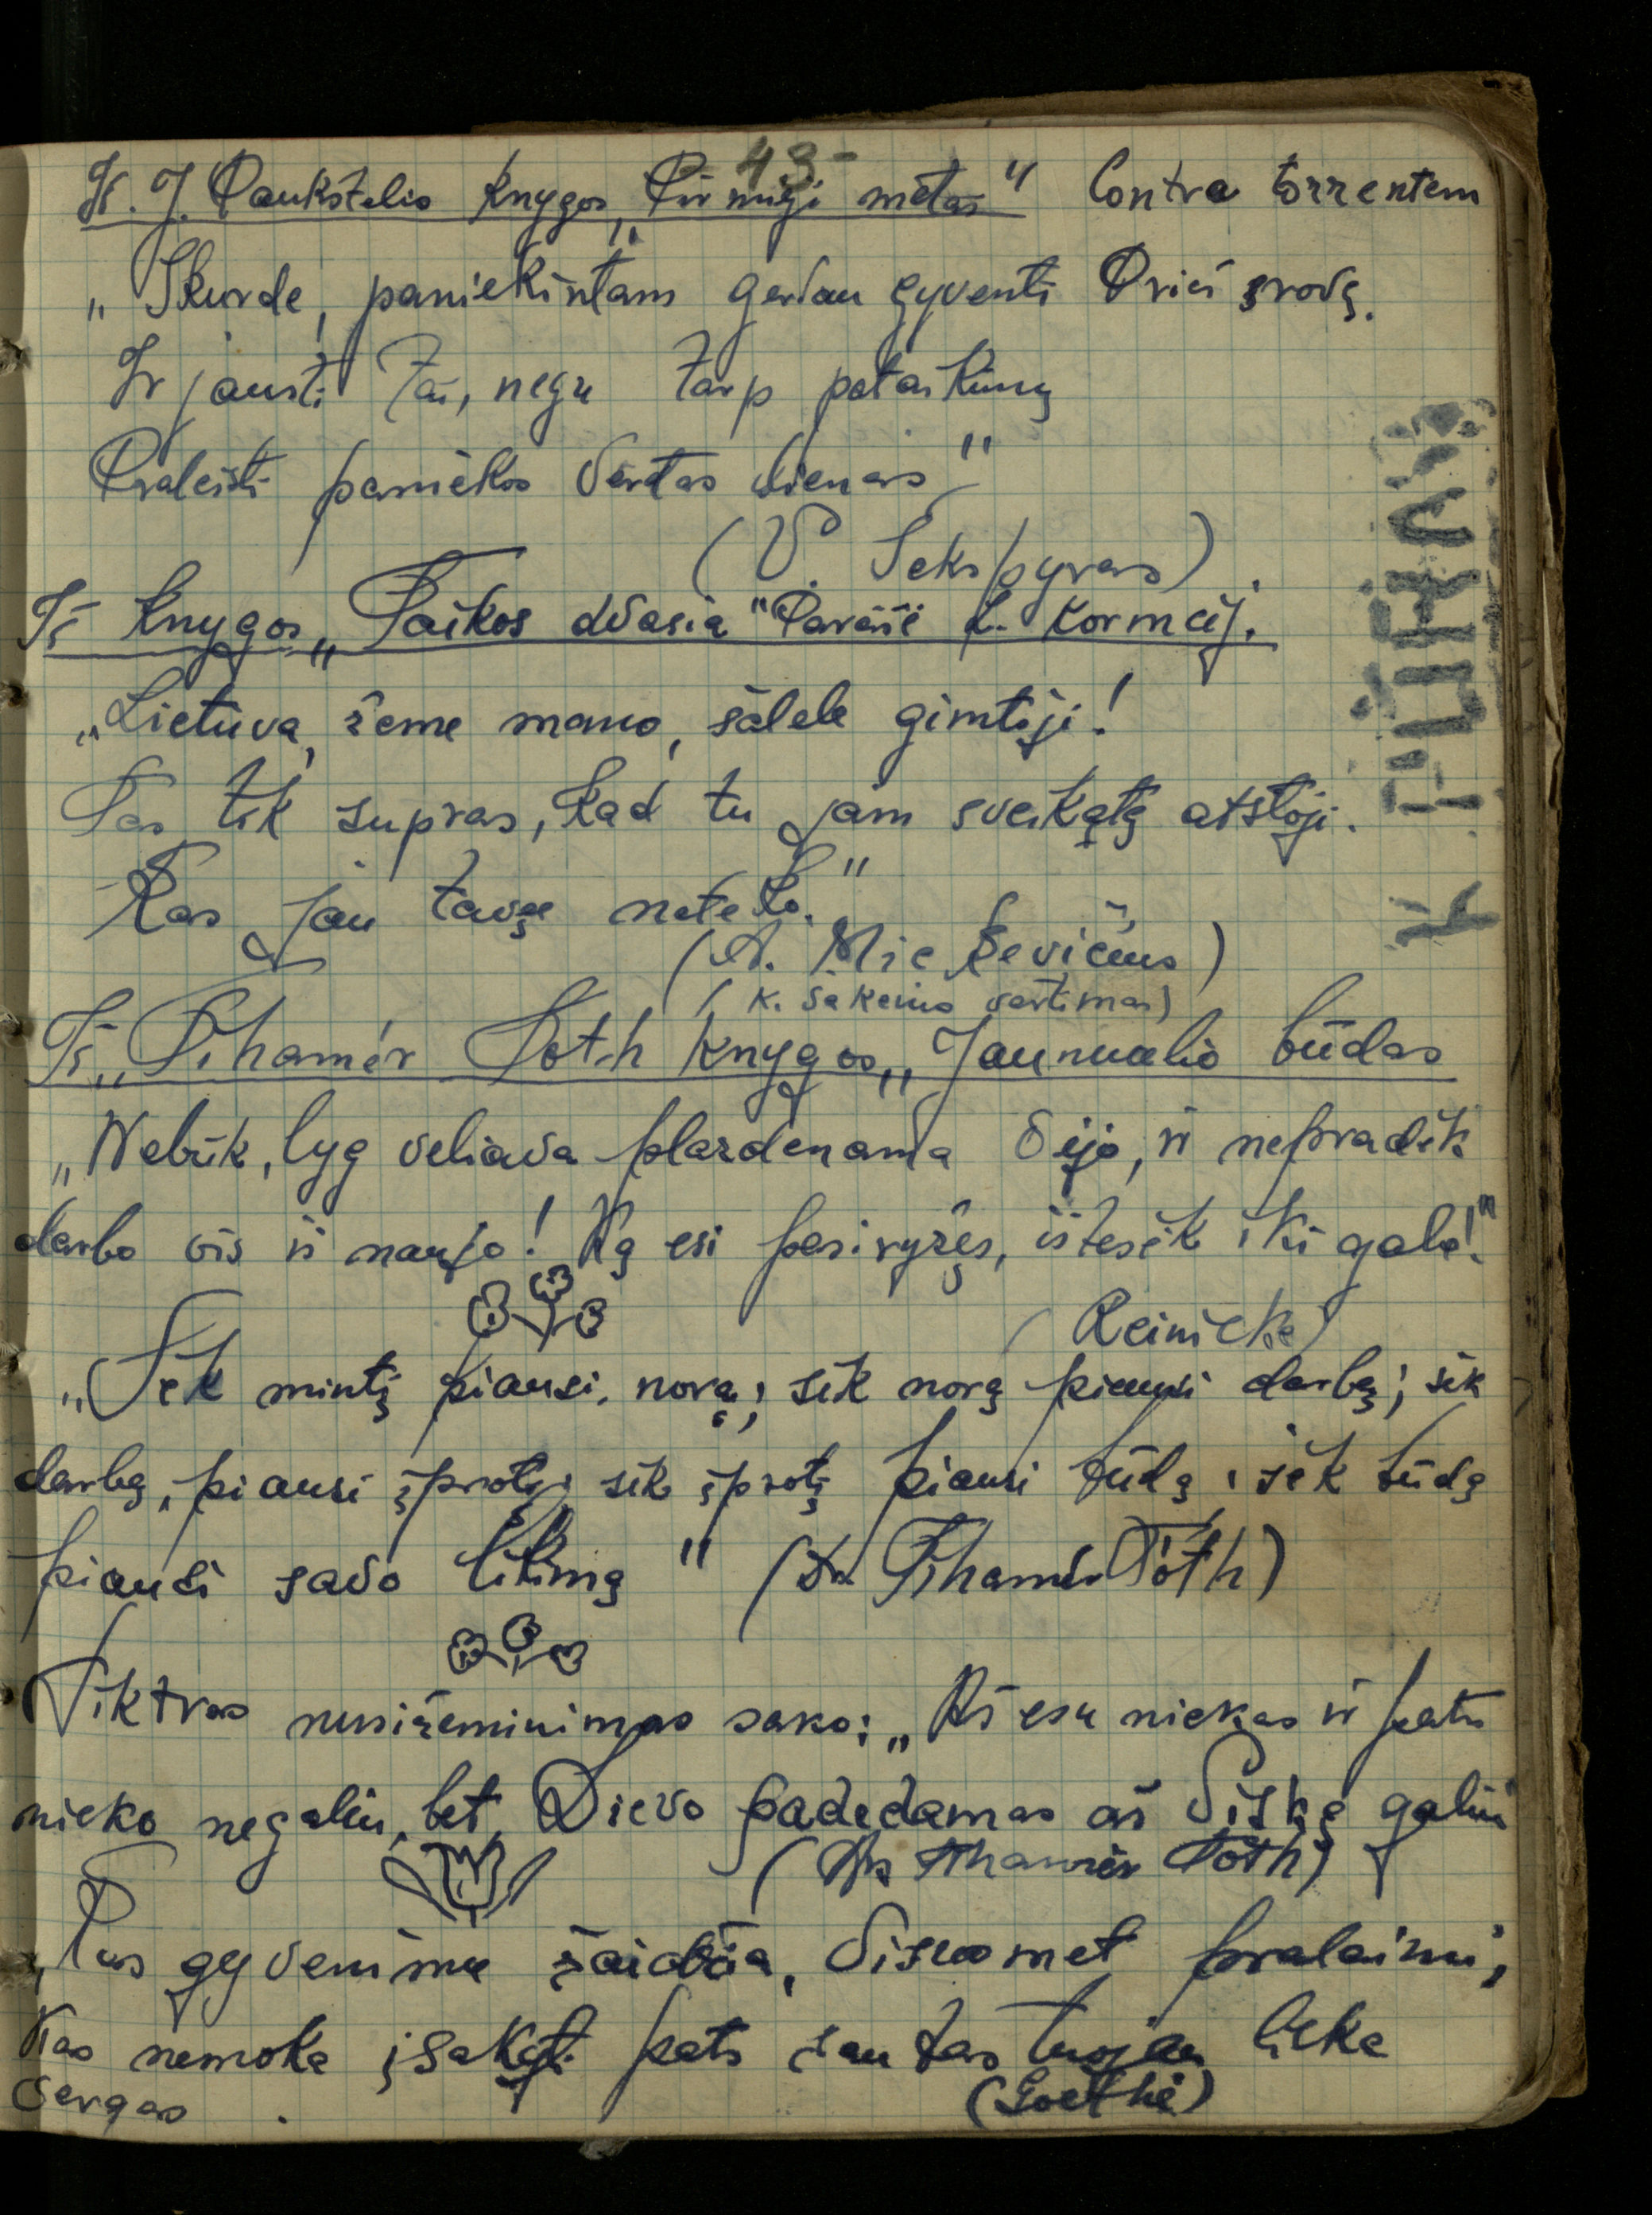 43-
Iš J. Paukštelio knygos „Pirmieji metai" Contra torrentem
„Skurde, paniekintam geriau gyventi Prieš srovę.
Ir jausti tai, negu tarp pataikūnų
Praleisti paniekos vertas dienas"
(V. Šekspyras).
Iš knygos „Taikos dvasia" Parašė L. Kormcij.
„Lietuva, žeme mano, šalele gimtoji!
Tas tik supras, kad tu jam sveikatą atstoji.
Kas jau tavęs neteko."
(A. Mickevičius)
(K. Šakenio vertimas)
Iš „Tihamér Toth knygos „Jaunuolio būdas
„Nebūk, lyg vėliava plazdenama vėjo, ir nepradėk
darbo vis iš naujo! Ką esi pasiryžęs, ištesėk iki galo!"
(Reinicke)
„Sėk mintį piausi norą; sėk norą piausi darbą; sėk
darbą, piausi įprotį; sėk įprotį piausi būdą; sėk būdą
piausi savo likimą" (Dr. Tihamér Tóth)
Tikras nusižeminimas sako: „Aš esu niekas ir pats
nieko negaliu, bet Dievo padedamas aš viską galiu
(Dr. Tihamér Tóth)
„Kas gyvenimu žaidžia, visuomet pralaimi;
Kas nemoka įsakyti pats sau tas tuojau lieka
vergas.
(Goethe)